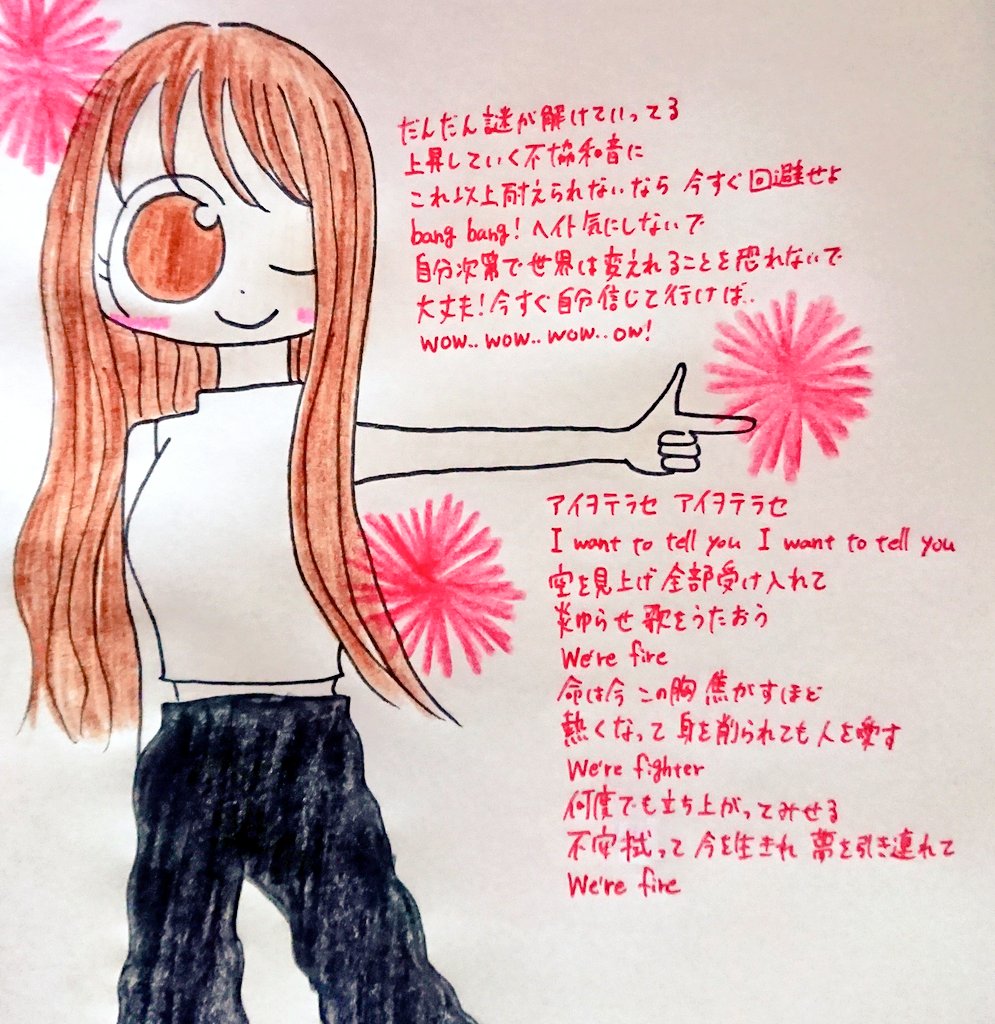 だんだん謎が解けていってる
上昇していく不協和音に
これ以上耐えられないなら 今すぐ回避せよ
bang bang! ヘイト気にしないで
自分次第で世界は変えれることを恐れないで
大丈夫!今すぐ自分信じて行けば..
wow.. wow.. wow.. ow!
アイヲテラセ アイヲテラセ
I want to tell you I want to tell you
空を見上げ全部受け入れて
炎ゆらせ歌をうたおう
We're fire
命は今 この胸 焦がすほど
熱くなって 身を削られても人を愛す
We're fighter
何度でも立ち上がってみせる
不安拭って 今を生きれ 夢を引き連れて
We're fire